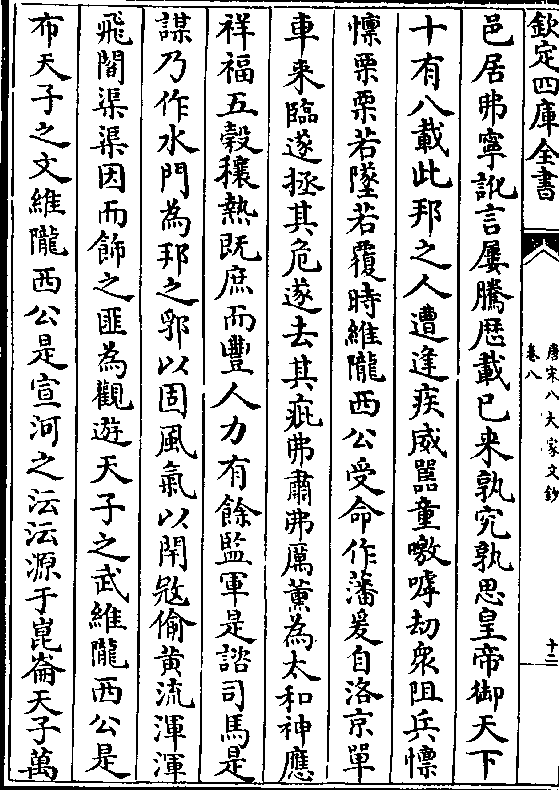 欽定四庫全書
唐宋八大家文鈔
卷八
十二
邑居弗寧訛言屢騰歴載已来孰究孰思皇帝御天下
十有八載此邦之人遭逢疾威嚚童噭嘑劫衆阻兵懍
懍栗栗若墜若覆時維隴西公受命作藩爰自洛京單
車来臨遂拯其危遂去其疵弗肅弗厲薰為太和神應
祥福五穀穰熟既庶而豐人力有餘監軍是諮司馬是
謀乃作水門為邦之郛以固風氣以閈㓂偷黄流渾渾
飛閣渠渠因而飾之匪為觀遊天子之武維隴西公是
布天子之文維隴西公是宣河之沄沄源于崑崙天子萬